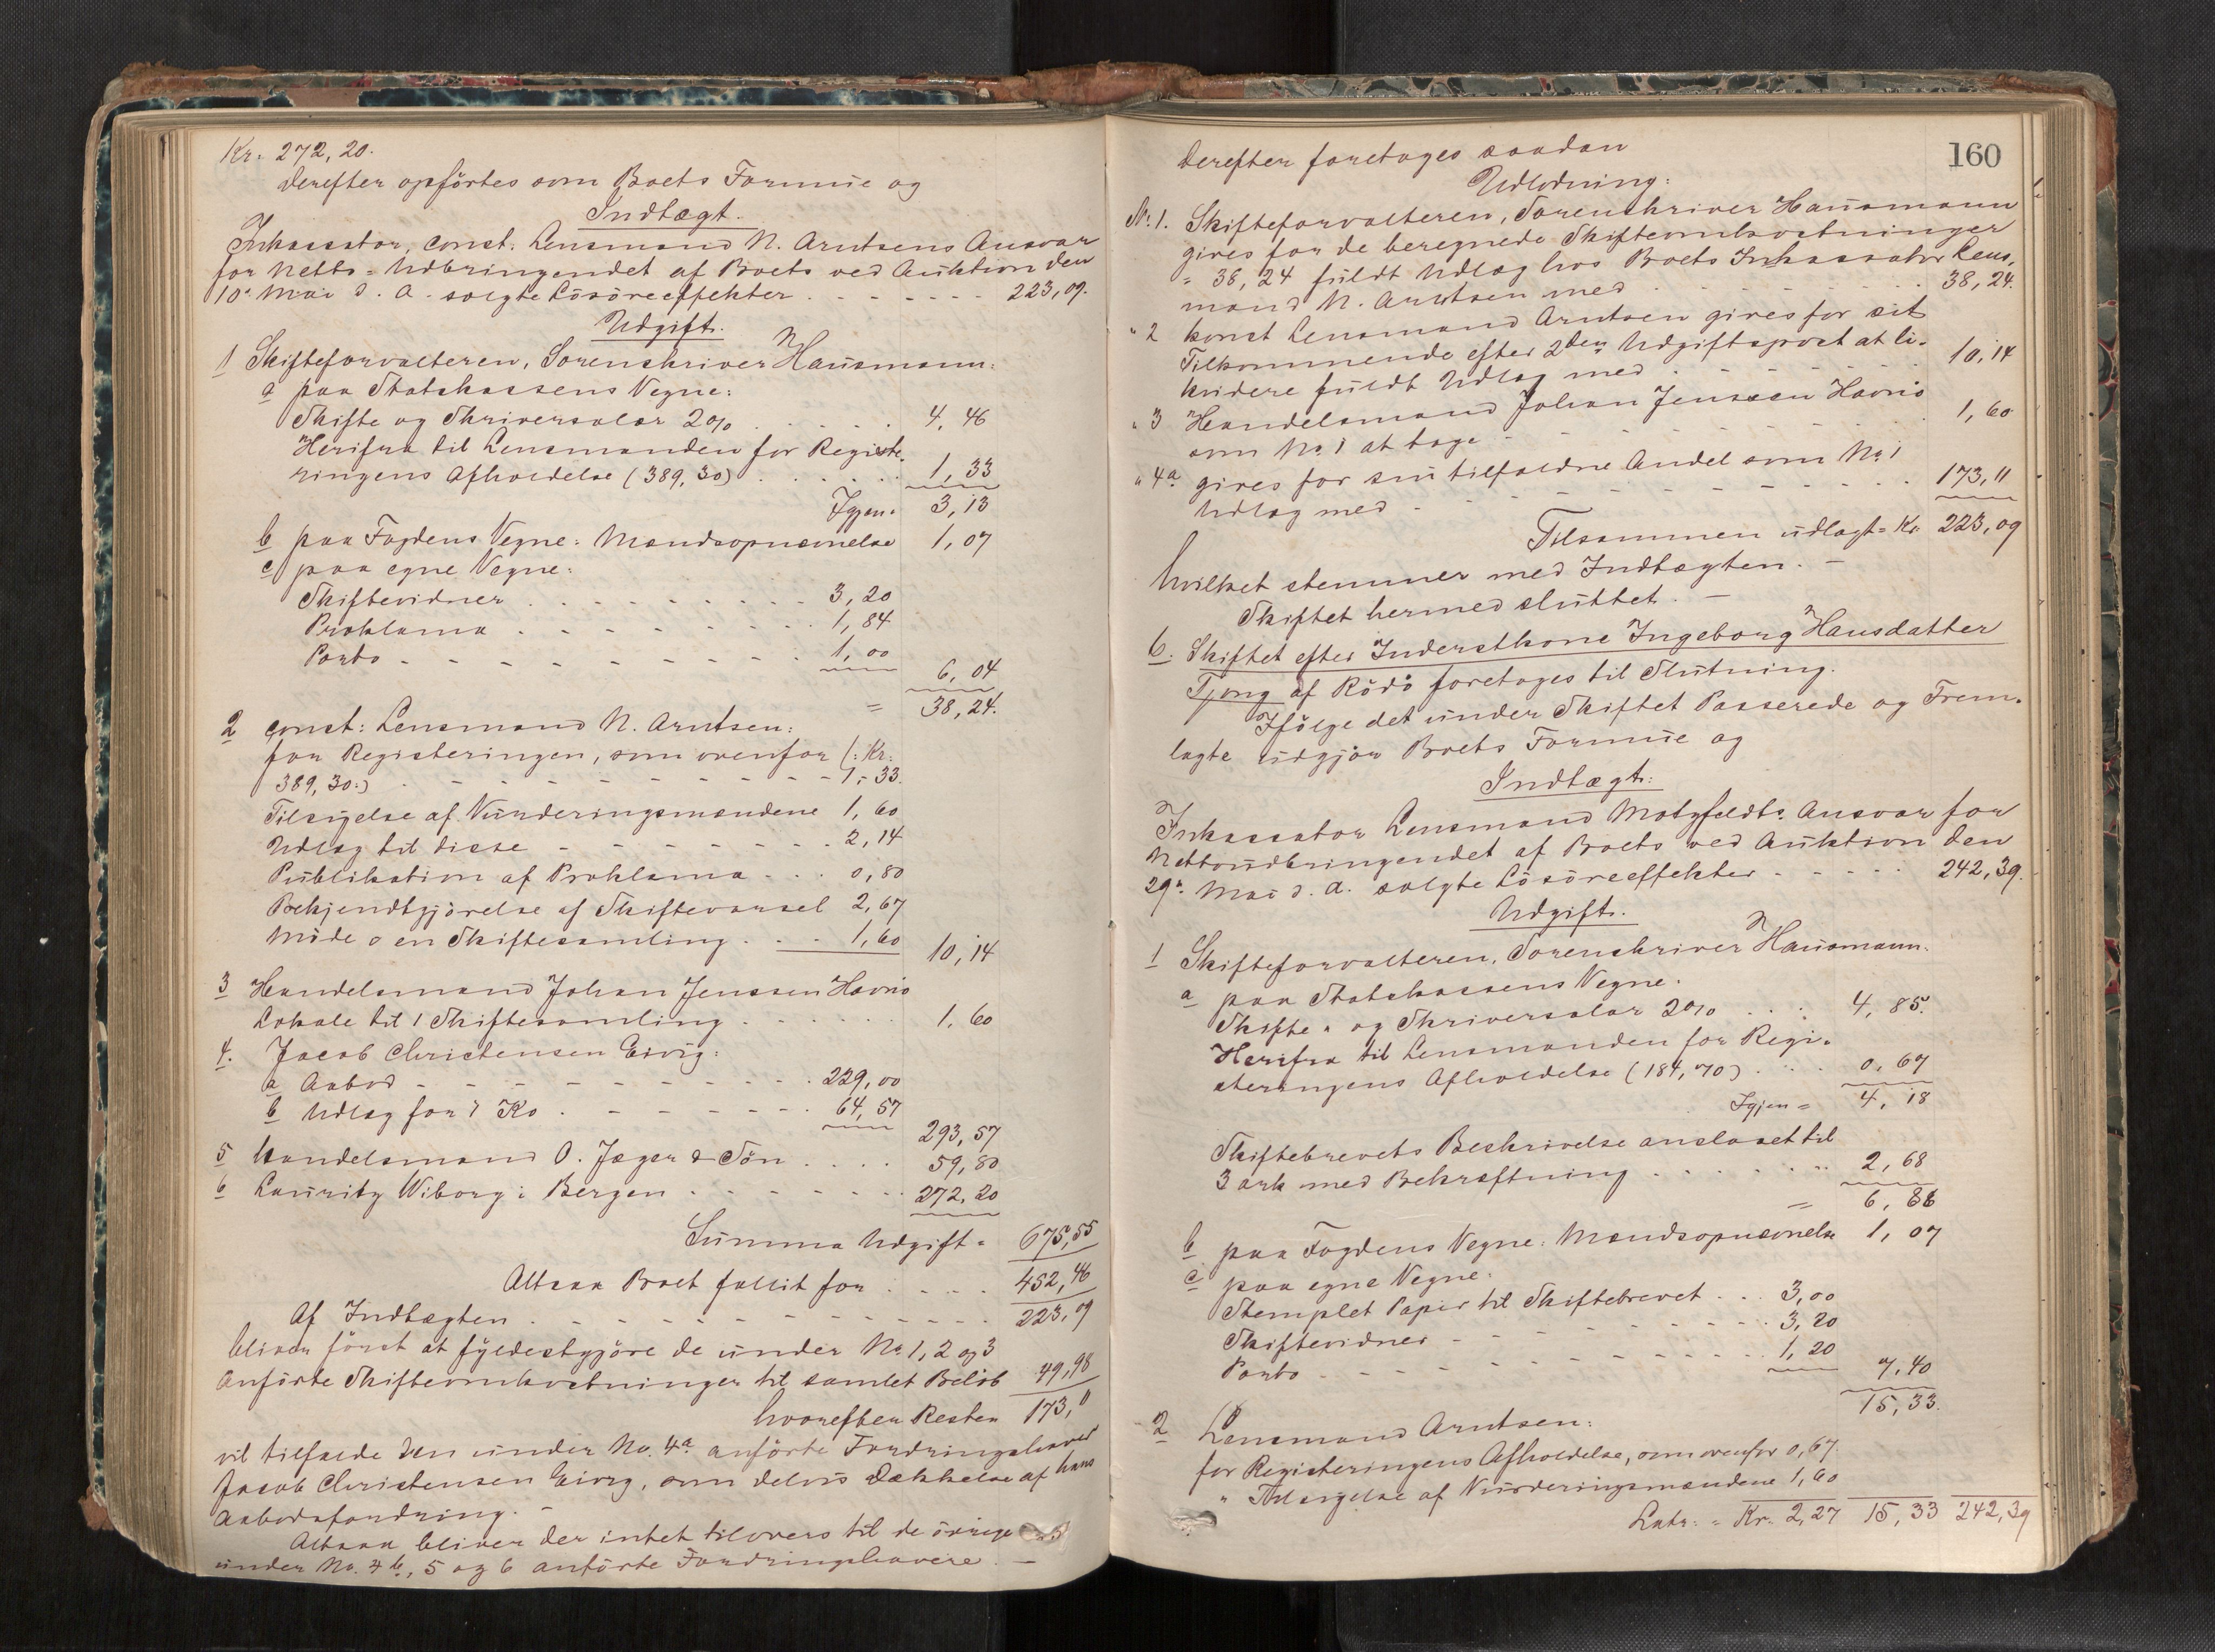 Kr. 272,20.
Derefter opförtes som Boets Formue og
Indtægt.
Inkassator, const. Lensmand N. Arntsens Ansvar
for Netto-Udbringendet af Boets ved Auktion den
10de Mai d. A. solgte Lösöreeffekter . . . . . . . 223,09.
Udgift.
1 Skifteforvalteren, Sorenskriver Hausmann:
a paa Statskassens Vegne:
Skifte og Skriversalær 2% . . . . . . 4,46
Herifra til Lensmanden for Registe-
ringens Afholdelse (389,30) . . . . . 1,33
Igjen = 3,13
b paa Fogdens Vegne: Mandsopnævnelse 1,07
c paa egne Vegne:
Skiftevidner . . . . . . . . . 3,20
Proklama . . . . . . . . . 1,84
Porto . . . . . . . . . 1,00
6,04
= 38,24.
2 const: Lensmand N. Arntsen:
for Registeringen, som ovenfor (: Kr.
389,30:) . . . . . . . . . 1,33.
Tilsigelse af Vurderingsmændene 1,60
Udlæg til disse . . . . . . . 2,14
Publikation af Proklama . . . 0,80
Bekjendtgjörelse af Skiftevarsel 2,67
Möde o en Skiftesamling . . . 1,60 10,14
3 Handelsmand Johan Jenssen Havnö
Lokale til 1 Skiftesamling . . . . . . 1,60
4. Jacob Christensen Eivig:
a Aabod . . . . . . . . . 229,00
b Udlæg for 1 Ko . . . . . . . 64,57
293,57
5 Handelsmand O. Jæger & Sön . . . . 59,80
6 Lauritz Wiborg i Bergen . . . . . . . 272,20
Summa Udgift = 675,55
Altsaa Boet fallit for . . . . 452,46
Af Indtægten . . . . . . . . . . . 223,09
bliver först at fyldestgjöre de under No. 1, 2 og 3
anförte Skifteomkostninger til samlet Belöb 49,98
hvorefter Resten 173,11
vil tilfalde den under No. 4a anförte Fordringshaver
Jacob Christensen Eivig, som delvis Dækkelse af hans
Aabodsfordring. —
Altsaa bliver der intet tilovers til de övrige
under No. 4b, 5 og 6 anförte Fordringshavere. —
160
Derefter foretages saadan
Udlodning:
No. 1. Skifteforvalteren, Sorenskriver Hausmann
gives for de beregnede Skifteomkostninger
= 38,24 fuldt Udlæg hos Boets Inkassator Lens-
mand N. Arntsen med . . . . . . . 38,24.
" 2 konst Lensmand Arntsen gives for sit
Tilkommende efter 2den Udgiftspost at li-
kvidere fuldt Udlæg med . . . . . . 10,14
" 3 Handelsmand Johan Jenssen Havnö
som No 1 at tage . . . . . . . . 1,60
" 4a gives for sin tilfaldne Andel som No 1
Udlæg med . . . . . . . . . . 173,11
Tilsammen udlagt = Kr. 223,09
hvilket stemmer med Indtægten. —
Skiftet hermed sluttet. —
6. Skiftet efter Inderstkone Ingeborg Hansdatter
Tjong af Rödö foretages til Slutning.
Ifölge det under Skiftet Passerede og Frem-
lagte udgjör Boets Formue og
Indtægt:
Inkassator Lensmand Motzfeldts Ansvar for
Nettoudbringendet af Boets ved Auktion den
29de Mai d. A. solgte Lösöreeffekter . . . . . 242,39.
Udgift.
1 Skifteforvalteren, Sorenskriver Hausmann.
a paa Statskassens Vegne.
Skifte- og Skriversalær 2% . . . . 4,85.
Herifra til Lensmanden for Regi-
steringens Afholdelse (184,70) . . . . 0,67
Igjen = 4,18
Skiftebrevets Beskrivelse anslaaet til
3 ark med Bekræftning . . . . . . . 2,68
= 6,86
b paa Fogdens Vegne. Mandsopnævnelse 1,07
c paa egne Vegne:
Stemplet Papir til Skiftebrevet . . . 3,00
Skiftevidner . . . . . . . . . . 3,20
Porto . . . . . . . . . . 1,20
7,40
15,33.
2 Lensmand Arntsen:
for Registeringens Afholdelse, som ovenfor 0,67.
" Tilsigelse af Vurderingsmændene 1,60
Latr. = Kr. 2,27 15,33 242,39